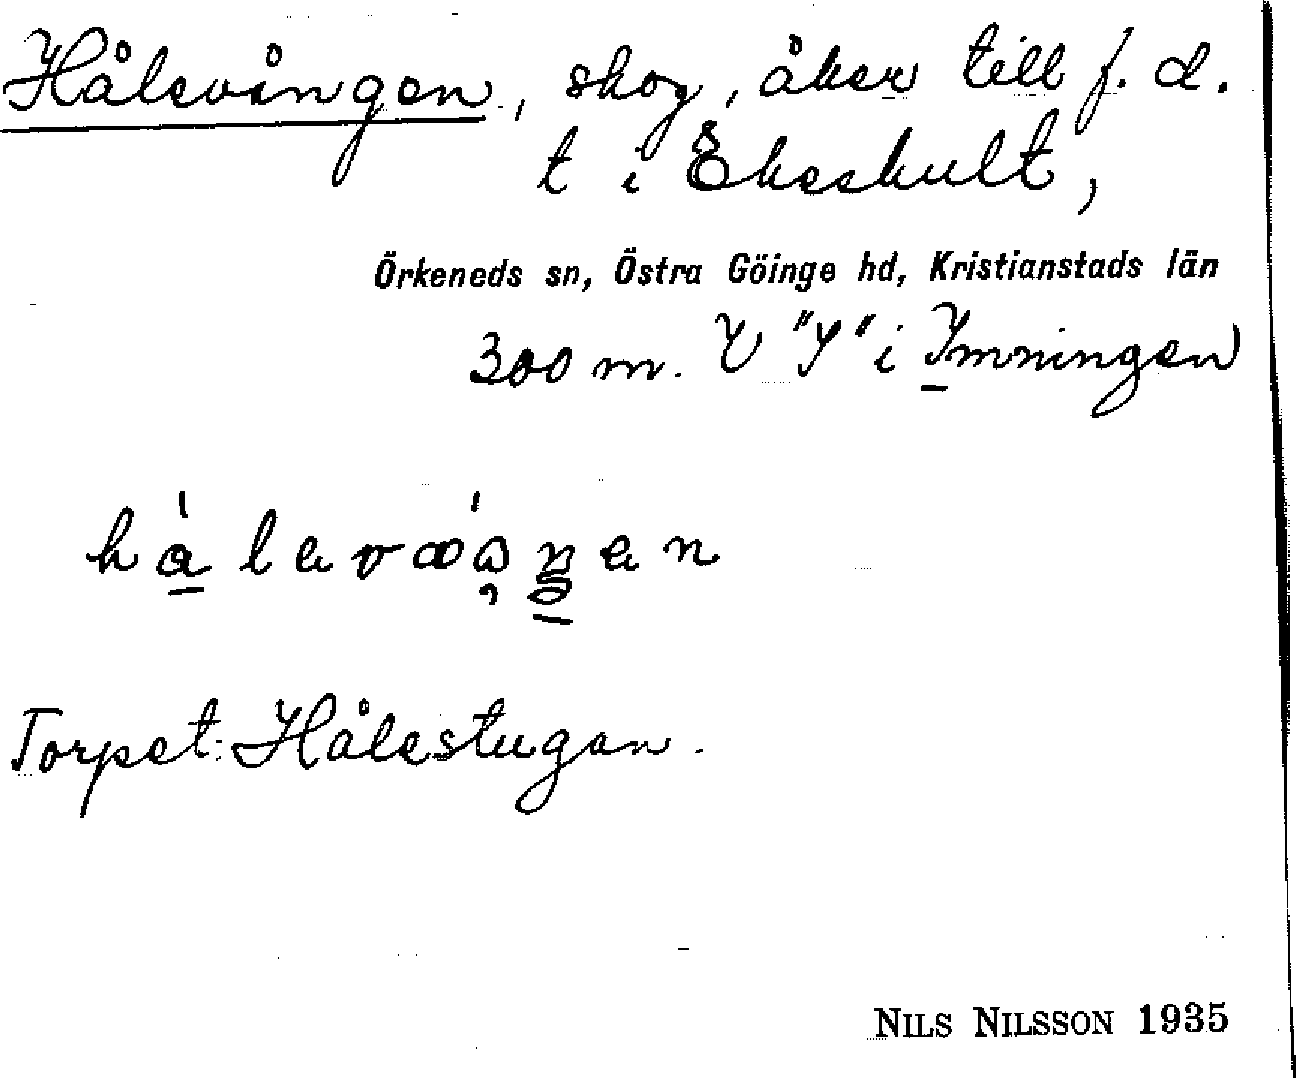 Hålevången, skog, åker till f. d.
t i Ekeskult,
Örkeneds sn, Östra Göinge hd, Kristianstads län
300 m. V "Y" i Ymningen
Torpet Hålestugan.
NILS NILSSON 1935